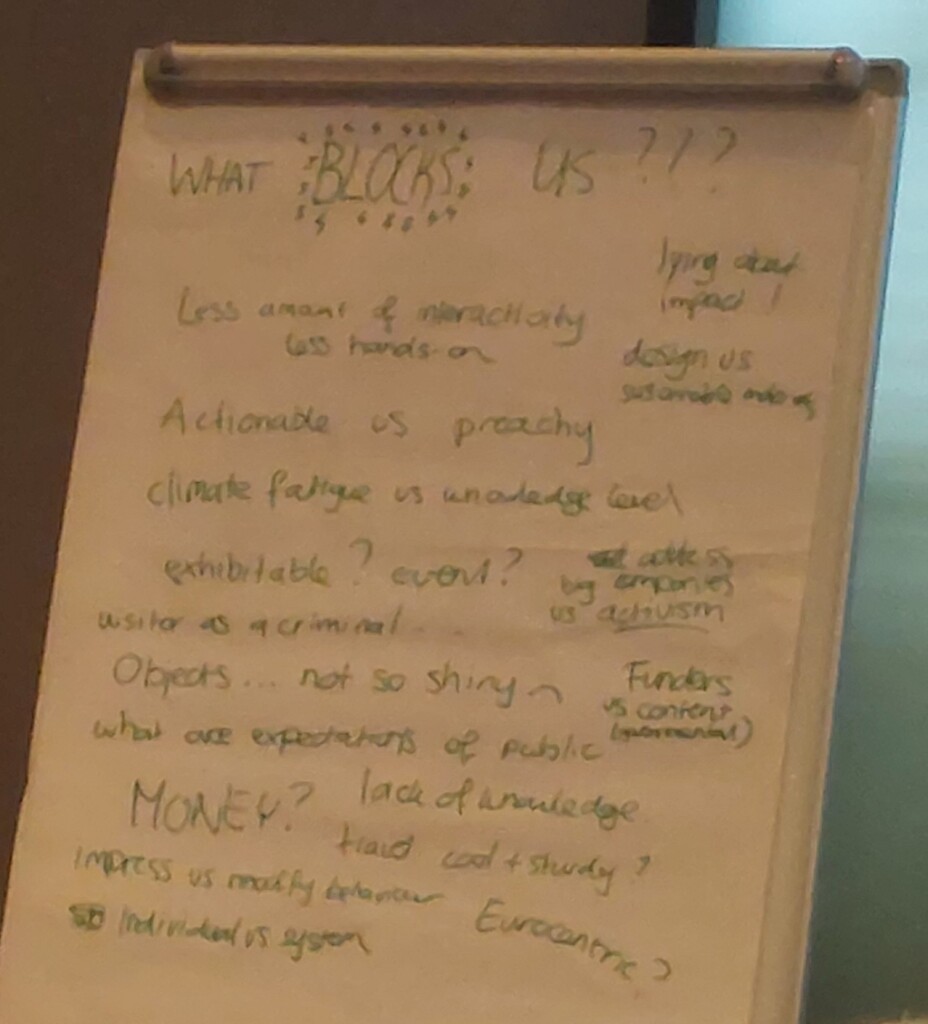 WHAT BLOCKS US ???
lying about
impact !
Less amount of interactivity
less hands-on
design vs
sustainable
Actionable vs preachy
climate fatigue vs knowledge level
exhibitable? event?
address
big companies
vs activism
visitor as a criminal...
Objects... not so shiny
Funders
vs content
what are expectations of public
MONEY?
lack of knowledge
cool + sturdy ?
impress vs modify behaviour
Eurocentric?
individual vs system